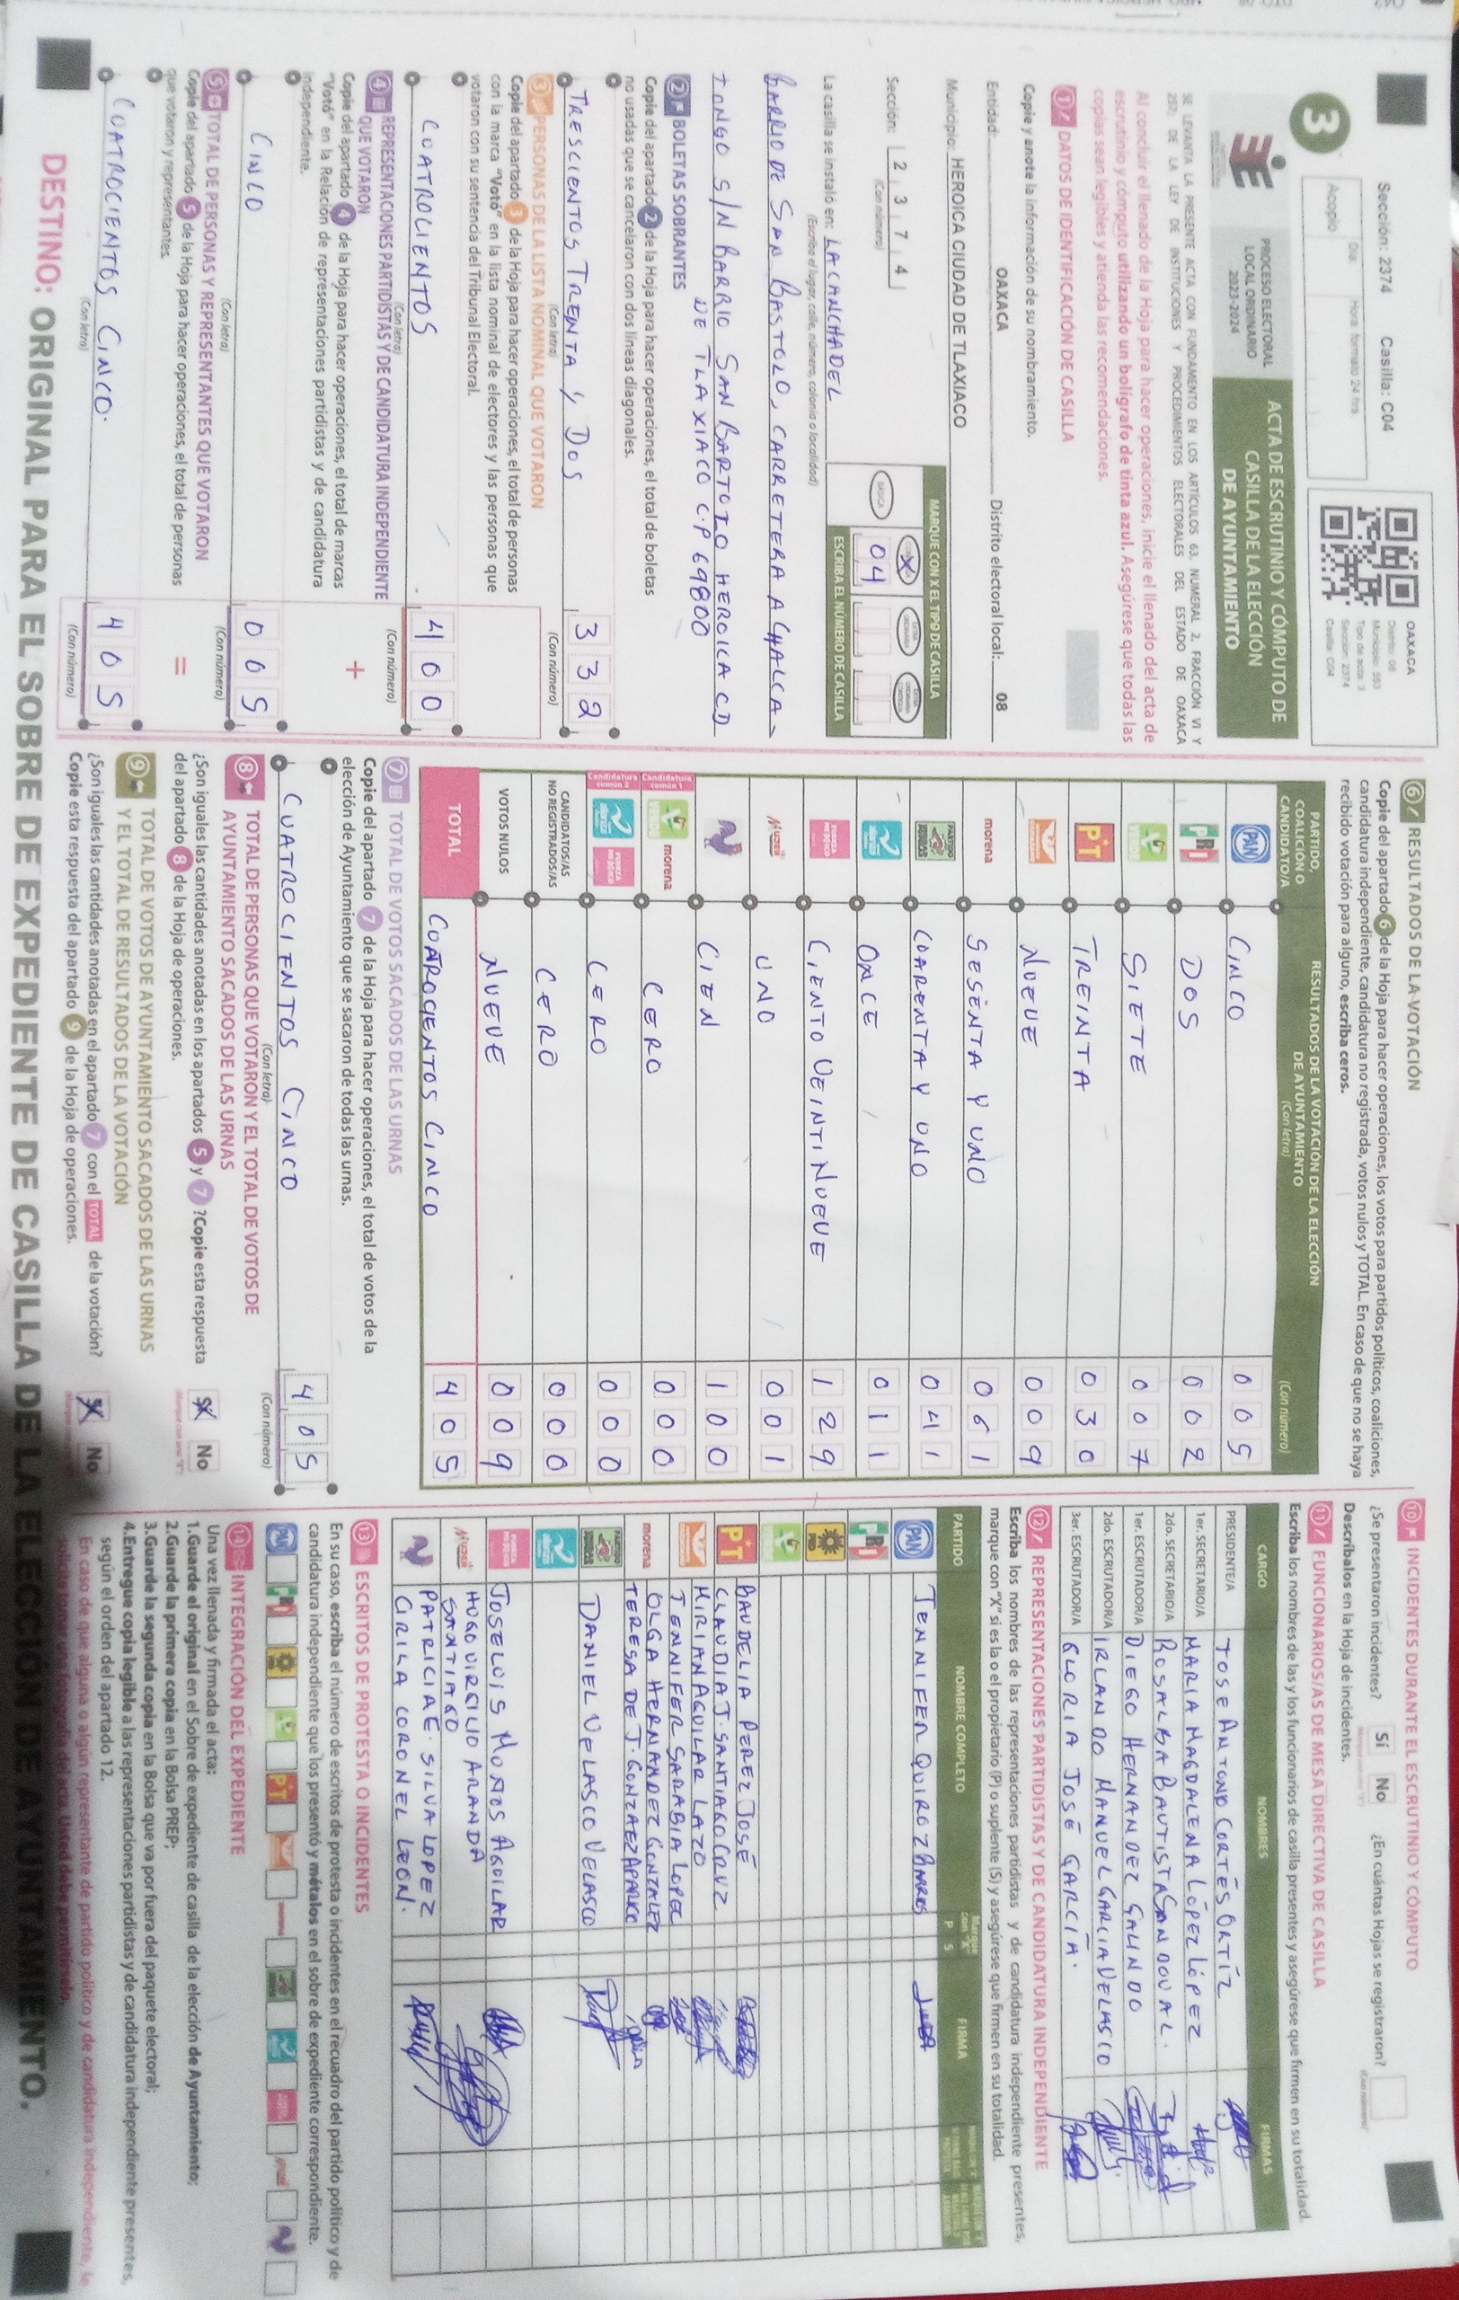 Sección: 2374 Casilla: C04
Día: Hora: formato 24 hrs.
Acopio
OAXACA
Distrito: 08
Municipio: 553
Tipo de acta: 3
Sección: 2374
Casilla: C04
3
PROCESO ELECTORAL
LOCAL ORDINARIO
2023-2024
ACTA DE ESCRUTINIO Y CÓMPUTO DE
CASILLA DE LA ELECCIÓN
DE AYUNTAMIENTO
SE LEVANTA LA PRESENTE ACTA CON FUNDAMENTO EN LOS ARTÍCULOS 63, NUMERAL 2, FRACCIÓN VI Y
257, DE LA LEY DE INSTITUCIONES Y PROCEDIMIENTOS ELECTORALES DEL ESTADO DE OAXACA
Al concluir el llenado de la Hoja para hacer operaciones, inicie el llenado del acta de
escrutinio y cómputo utilizando un bolígrafo de tinta azul. Asegúrese que todas las
copias sean legibles y atienda las recomendaciones.
1 DATOS DE IDENTIFICACIÓN DE CASILLA
Copie y anote la información de su nombramiento.
Entidad: OAXACA Distrito electoral local: 08
Municipio: HEROICA CIUDAD DE TLAXIACO
Sección: 2 3 7 4
(Con número)
MARQUE CON X EL TIPO DE CASILLA
BÁSICA X
04
ESCRIBA EL NÚMERO DE CASILLA
La casilla se instaló en: LA CANCHA DEL
(Escriba el lugar, calle, número, colonia o localidad)
BARRIO DE SAN BASTOLO, CARRETERA A CHALCA-
TONGO S/N BARRIO SAN BARTOLO HEROICA CD
DE TLAXIACO C.P 69800
2 BOLETAS SOBRANTES
Copie del apartado 2 de la Hoja para hacer operaciones, el total de boletas
no usadas que se cancelaron con dos líneas diagonales.
TRESCIENTOS TRENTA Y DOS 3 3 2
(Con letra) (Con número)
3 PERSONAS DE LA LISTA NOMINAL QUE VOTARON
Copie del apartado 3 de la Hoja para hacer operaciones, el total de personas
con la marca "Votó" en la lista nominal de electores y las personas que
votaron con su sentencia del Tribunal Electoral.
CUATROCIENTOS 4 0 0
(Con letra) (Con número)
4 REPRESENTACIONES PARTIDISTAS Y DE CANDIDATURA INDEPENDIENTE
QUE VOTARON
Copie del apartado 4 de la Hoja para hacer operaciones, el total de marcas
"Votó" en la Relación de representaciones partidistas y de candidatura
independiente.
+
CINCO 0 0 5
(Con letra) (Con número)
5 TOTAL DE PERSONAS Y REPRESENTANTES QUE VOTARON
Copie del apartado 5 de la Hoja para hacer operaciones, el total de personas
que votaron y representantes.
=
CUATROCIENTOS CINCO. 4 0 5
(Con letra) (Con número)
6 RESULTADOS DE LA VOTACIÓN
Copie del apartado 6 de la Hoja para hacer operaciones, los votos para partidos políticos, coaliciones,
candidatura independiente, candidatura no registrada, votos nulos y TOTAL. En caso de que no se haya
recibido votación para alguno, escriba ceros.
PARTIDO, COALICIÓN O CANDIDATO/A
RESULTADOS DE LA VOTACIÓN DE LA ELECCIÓN DE AYUNTAMIENTO
(Con letra) (Con número)
PAN CINCO 0 0 5
PRI DOS 0 0 2
VERDE SIETE 0 0 7
PT TREINTA 0 3 0
NUEVE 0 0 9
morena SESENTA Y UNO 0 6 1
CUARENTA Y UNO 0 4 1
ONCE 0 1 1
FUERZA POR MÉXICO CIENTO VEINTINUEVE 1 2 9
MUJER UNO 0 0 1
CIEN 1 0 0
Candidatura común 1 VERDE morena CERO 0 0 0
Candidatura común 2 CERO 0 0 0
CANDIDATOS/AS NO REGISTRADOS/AS CERO 0 0 0
VOTOS NULOS NUEVE 0 0 9
TOTAL CUATROCIENTOS CINCO 4 0 5
7 TOTAL DE VOTOS SACADOS DE LAS URNAS
Copie del apartado 7 de la Hoja para hacer operaciones, el total de votos de la
elección de Ayuntamiento que se sacaron de todas las urnas.
CUATROCIENTOS CINCO 4 0 5
(Con letra) (Con número)
8 TOTAL DE PERSONAS QUE VOTARON Y EL TOTAL DE VOTOS DE
AYUNTAMIENTO SACADOS DE LAS URNAS
¿Son iguales las cantidades anotadas en los apartados 5 y 7 ? Copie esta respuesta
del apartado 8 de la Hoja de operaciones.
Sí No
9 TOTAL DE VOTOS DE AYUNTAMIENTO SACADOS DE LAS URNAS
Y EL TOTAL DE RESULTADOS DE LA VOTACIÓN
¿Son iguales las cantidades anotadas en el apartado 7 con el TOTAL de la votación?
Copie esta respuesta del apartado 9 de la Hoja de operaciones.
Sí No
10 INCIDENTES DURANTE EL ESCRUTINIO Y CÓMPUTO
¿Se presentaron incidentes? Sí No ¿En cuántas Hojas se registraron?
(Con número)
Descríbalos en la Hoja de incidentes.
11 FUNCIONARIOS/AS DE MESA DIRECTIVA DE CASILLA
Escriba los nombres de las y los funcionarios de casilla presentes y asegúrese que firmen en su totalidad.
CARGO NOMBRES FIRMAS
PRESIDENTE/A JOSE ANTONO CORTÉS ORTÍZ
1er. SECRETARIO/A MARIA MAGDALENA LÓPEZ LÓPEZ
2do. SECRETARIO/A ROSALBA BAUTISTA SANDOVAL.
1er. ESCRUTADOR/A DIEGO HERNANDEZ GALINDO
2do. ESCRUTADOR/A IRLANDO MANUEL GARCIA VELASCO
3er. ESCRUTADOR/A GLORIA JOSÉ GARCÍA.
12 REPRESENTACIONES PARTIDISTAS Y DE CANDIDATURA INDEPENDIENTE
Escriba los nombres de las representaciones partidistas y de candidatura independiente presentes,
marque con "X" si es la o el propietario (P) o suplente (S) y asegúrese que firmen en su totalidad.
PARTIDO NOMBRE COMPLETO Marque con "X" P S FIRMA
PAN JENNIFER QUIROZ BARRIOS
PRI
PRD
VERDE
PT BAUDELIA PEREZ JOSÉ
CLAUDIA J. SANTIAGO CRUZ
MIRIAN AGUILAR LAZO
JENNIFER SARABIA LOPEZ
morena OLGA HERNANDEZ GONZALEZ
TERESA DE J. GONZAEZ APARICIO
DANIEL VELASCO VELASCO
JOSE LUIS MONJOS AGUILAR
MUJER HUGO VIRGILIO ARANDA
SANTIAGO
PATRICIA E. SILVA LOPEZ
CIRILA CORONEL LEON.
13 ESCRITOS DE PROTESTA O INCIDENTES
En su caso, escriba el número de escritos de protesta o incidentes en el recuadro del partido político y de
candidatura independiente que los presentó y métalos en el sobre de expediente correspondiente.
PAN PRI PRD VERDE PT
14 INTEGRACIÓN DEL EXPEDIENTE
Una vez llenada y firmada el acta:
1.Guarde el original en el Sobre de expediente de casilla de la elección de Ayuntamiento;
2.Guarde la primera copia en la Bolsa PREP;
3.Guarde la segunda copia en la Bolsa que va por fuera del paquete electoral;
4.Entregue copia legible a las representaciones partidistas y de candidatura independiente presentes,
según el orden del apartado 12.
En caso de que alguna o algún representante de partido político y de candidatura independiente, le
solicite tomar una fotografía del acta, Usted debe permitírselo.
DESTINO: ORIGINAL PARA EL SOBRE DE EXPEDIENTE DE CASILLA DE LA ELECCIÓN DE AYUNTAMIENTO.